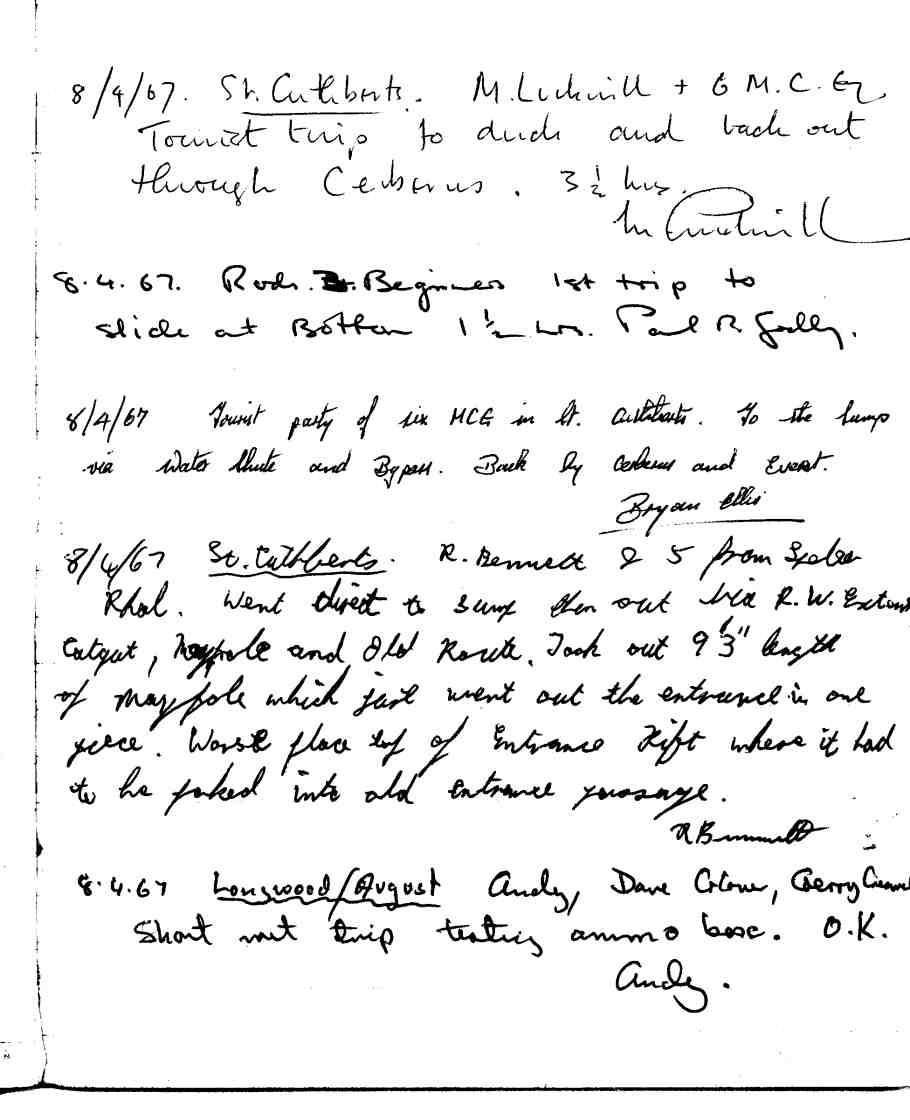 8/4/67. St. Cuthberts. M. Luckwill + 6 M.C.G.
Tourist trip to duck and back out
through Cerberus. 3½ hrs.
M Luckwill
8.4.67. Rods. Beginners 1st trip to
slide at Bottom 1½ hrs. Paul R.
8/4/67 Tourist party of six MCG in St. Cuthberts. To the Sump
via Water Chute and Bypass. Back by Cerberus and Everest.
Bryan Ellis
8/4/67 St. Cuthberts. R. Bennett & 5 from Speleo
Rhal. Went direct to sump then out via R. W. Extens
Catgut, Maypole and Old Route. Took out 9'3" length
of maypole which just went out the entrance in one
piece. Worst place top of Entrance Rift where it had
to be poked into old entrance passage.
R Bennett
8.4.67 Longwood/August Andy, Dave, Gerry
Short wet trip testing ammo box. O.K.
Andy.